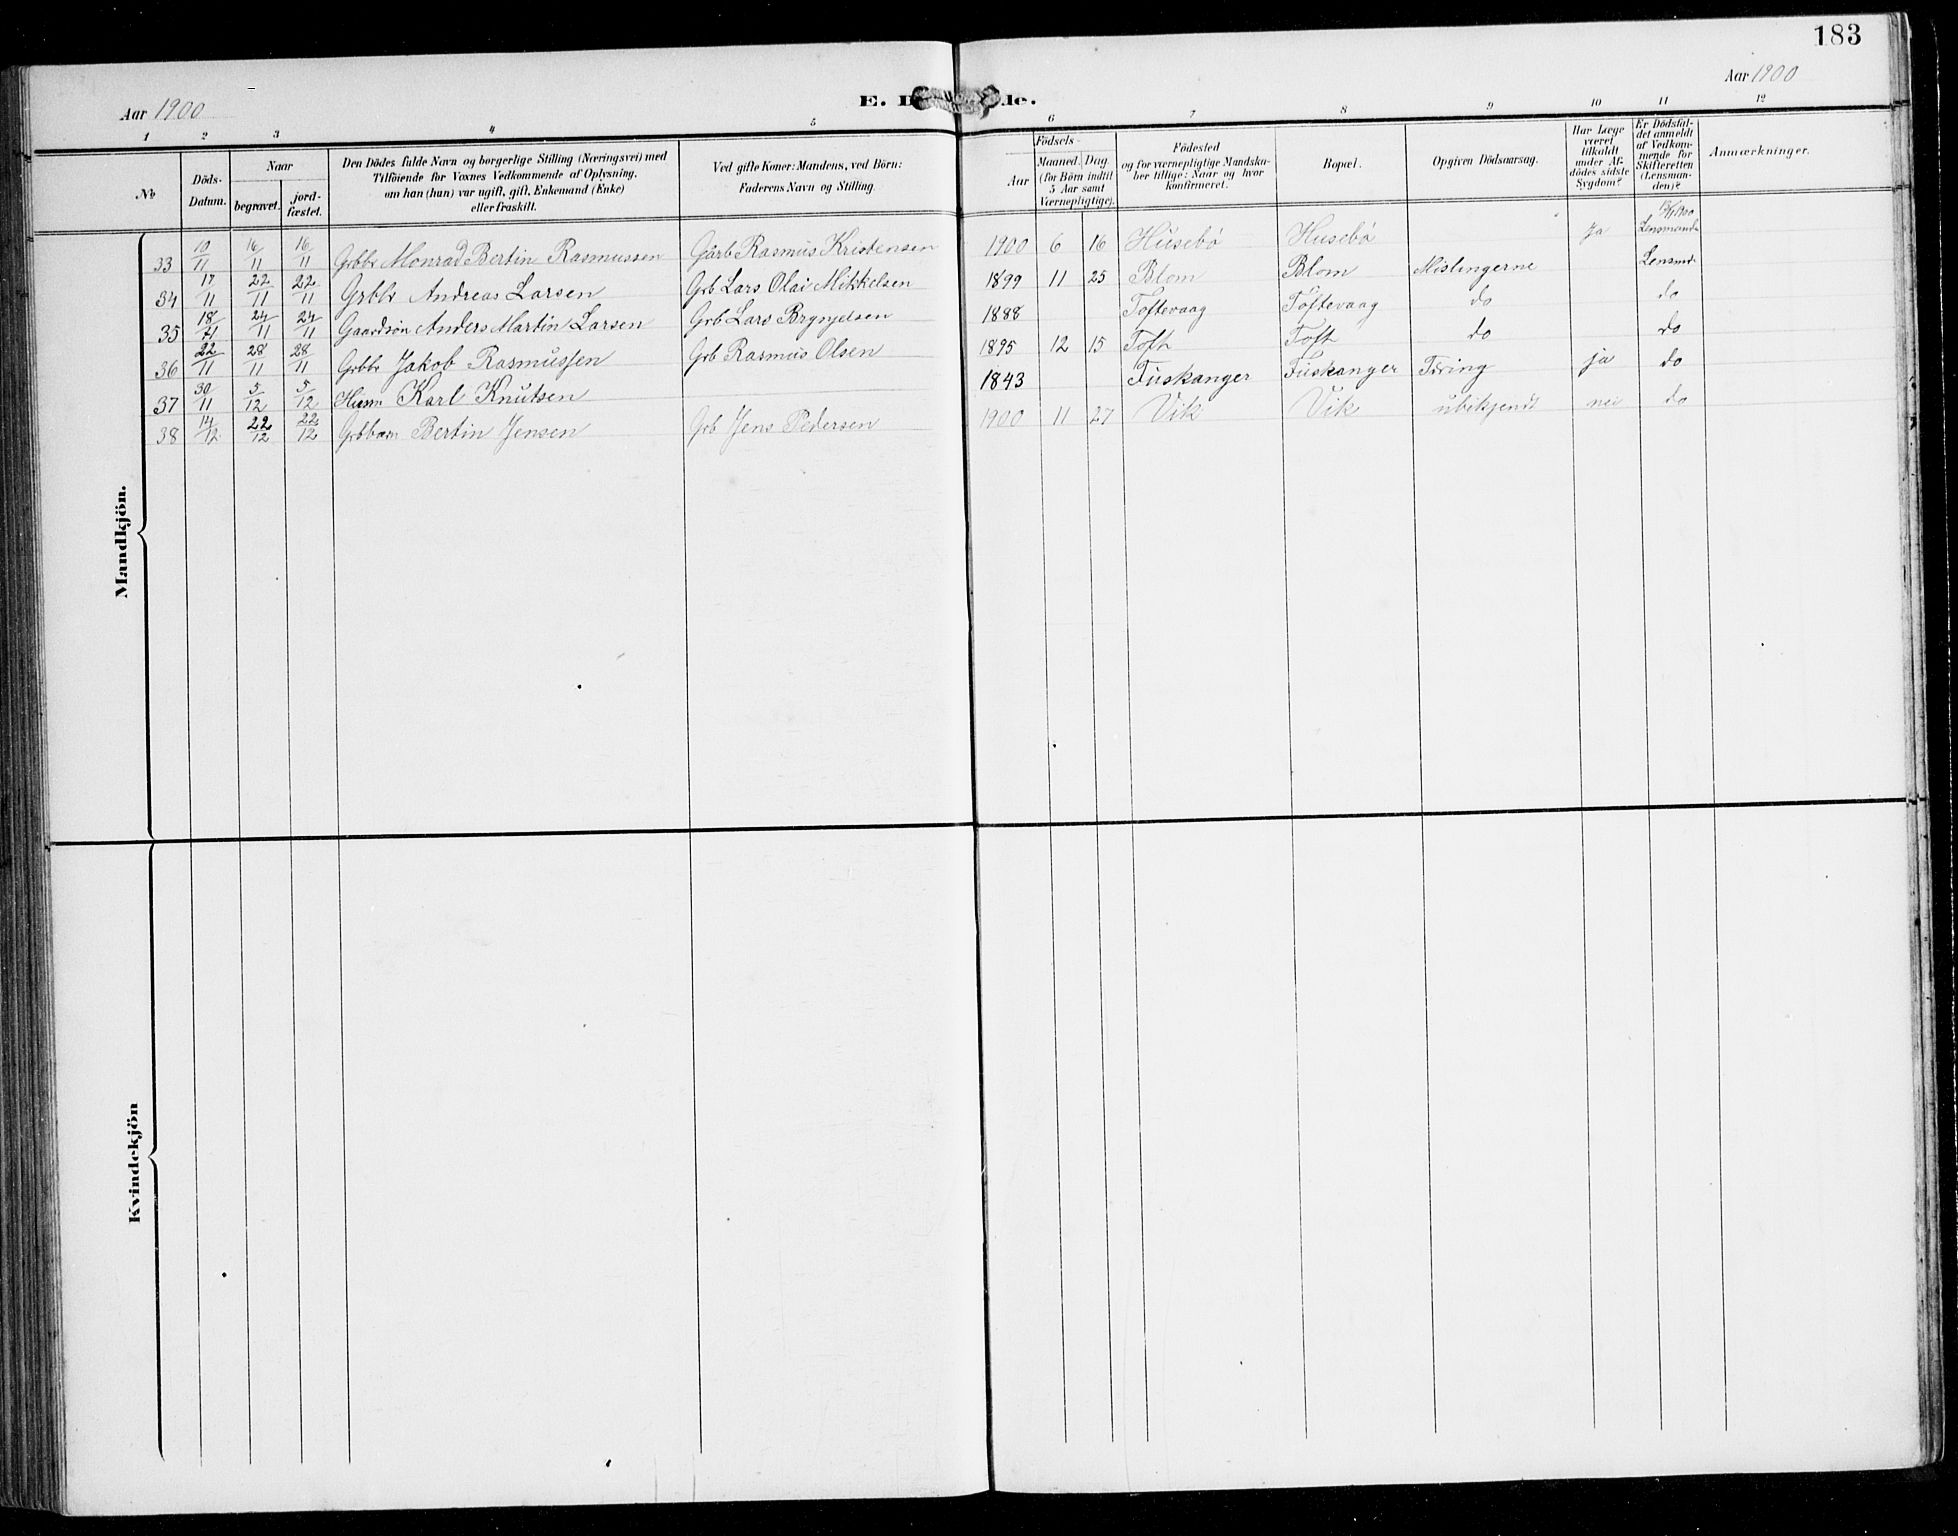 183
Aar 1900
Aar 1900
E. D de.
1 2 3 4 5 6 7 8 9 10 11 12
No
Döds-Datum.
Naar
begravet.
jord-fæstet.
Den Dödes fulde Navn og borgerlige Stilling (Næringsvei) med
Tilföiende for Voxnes Vedkommende af Oplysning,
om han (hun) var ugift, gift, Enkemand (Enke)
eller fraskilt.
Ved gifte Koner: Mandens, ved Börn:
Faderens Navn og Stilling.
Födsels-
Aar
Maaned. Dag
(for Börn indtil
5 Aar samt
Værnepligtige).
Födested
og for værnepligtige Mandska-
ber tillige: Naar og hvor
konfirmeret.
Bopæl.
Opgiven Dödsaarsag.
Har Læge
været
tilkaldt
under Af-
dödes sidste
Sygdom?
Er Dödsfal-
det anmeldt
af Vedkom-
mende for
Skifteretten
(Lensman-
den)?
Anmærkninger.
Mandkjön.
33 10/11 16/11 16/11 Grbbr Monrad Bertin Rasmussen Gårb Rasmus Kristensen 1900 6 16 Husebö Husebö Ja Lensmand
34 17/11 22/11 22/11 Grbbr Andreas Larsen Grb Lars Olai Mikkelsen 1899 11 25 Blom Blom Mislingerne Lensmd
35 18/11 24/11 24/11 Gaardsön Anders Martin Larsen Grb Lars Brynjelsen 1888 Toftevaag Toftevaag do do
36 22/11 28/11 28/11 Grbbr Jakob Rasmussen Grb Rasmus Olsen 1895 12 15 Toft Toft do do
37 30/11 5/12 5/12 Husm Karl Knutsen 1843 Fuskanger Fuskanger Tæring ja do
38 14/12 22/12 22/12 Grbbarn Bertin Jensen Grb Jens Pedersen 1900 11 27 Vik Vik ubekjendt nei do
Kvindekjön